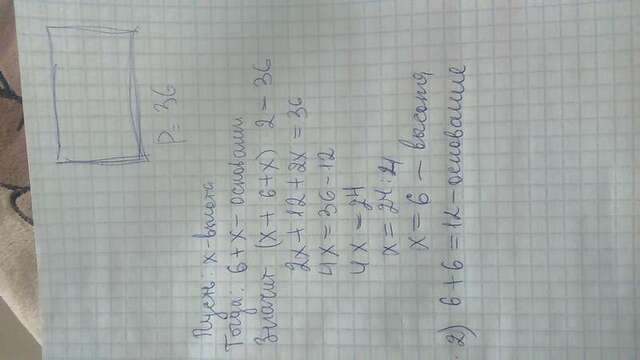 P = 36
Пусть: x - высота
Тогда: 6 + x - основании
Значит (x + 6 + x) 2 - 36
2x + 12 + 2x = 36
4x = 36 - 12
4x = 24
x = 24 : 4
x = 6 - высота
2) 6 + 6 = 12 - основание